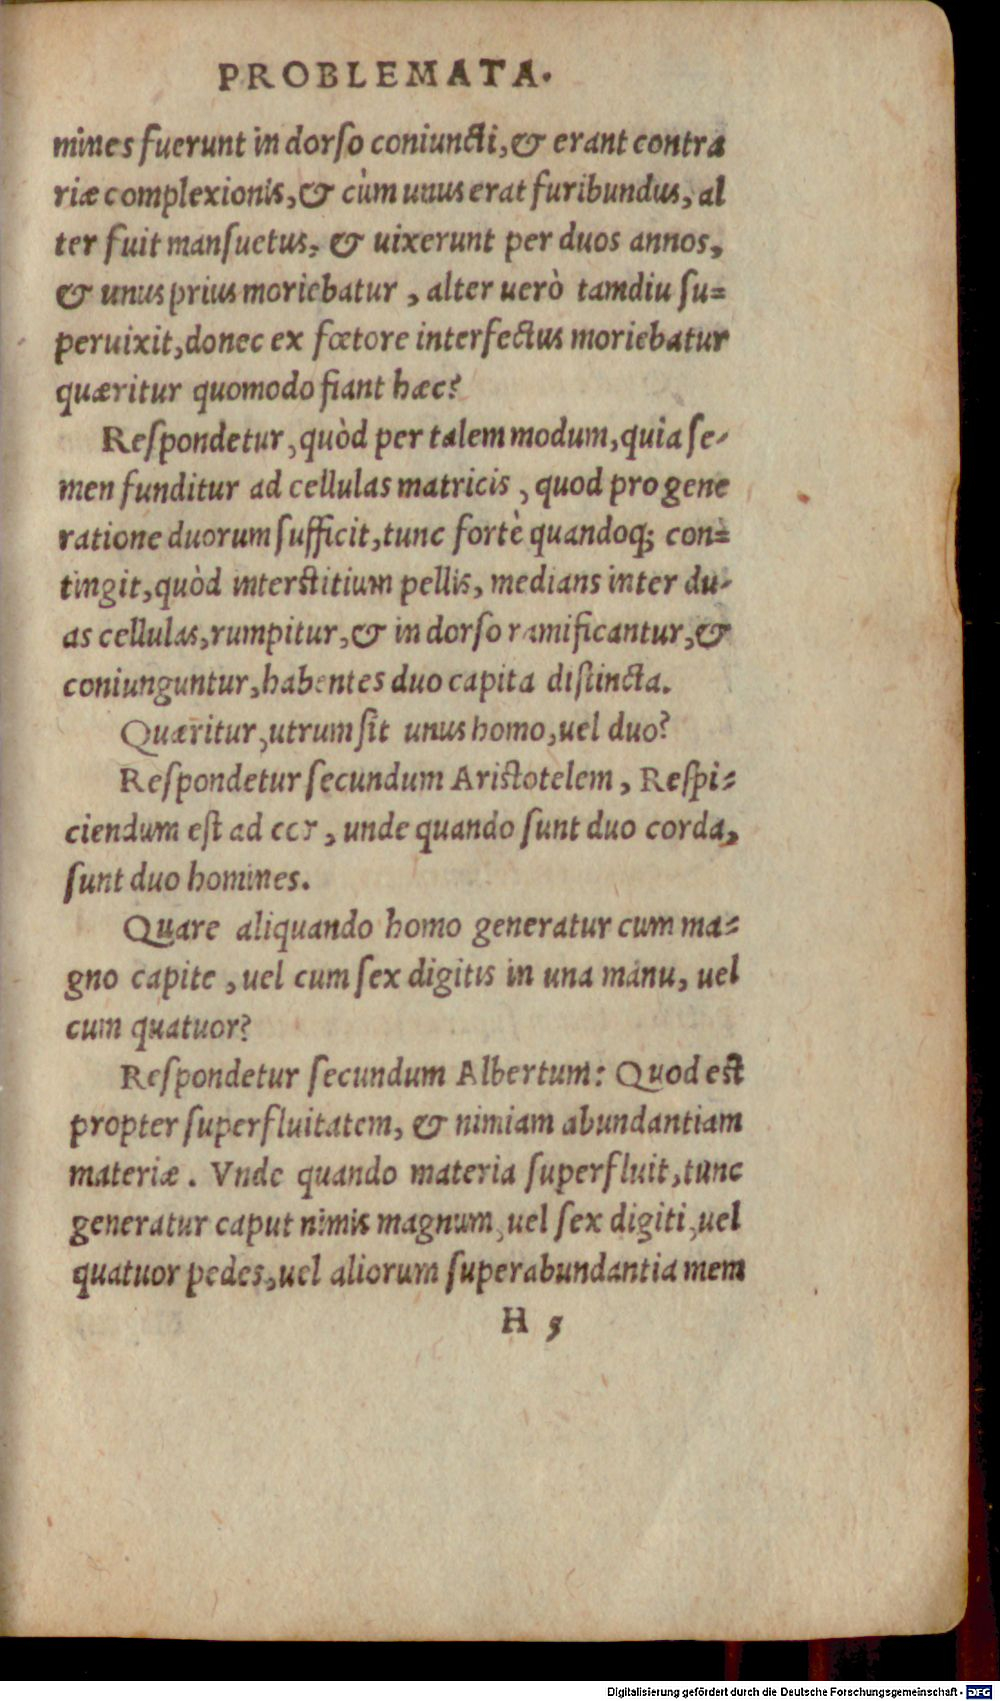 PROBLEMATA.
mines fuerunt in dorſo coniuncti, & erant contra
riæ complexionis, & cùm unus erat furibundus, al
ter fuit manſuetus, & uixerunt per duos annos,
& unus prius moriebatur, alter uerò tamdiu ſu=
peruixit, donec ex fœtore interfectus moriebatur
quæritur quomodo fiant hæc?
Reſpondetur, quòd per talem modum, quia ſe-
men funditur ad cellulas matricis, quod pro gene
ratione duorum ſufficit, tunc fortè quandoq; con=
tingit, quòd interſtitium pellis, medians inter du-
as cellulas, rumpitur, & in dorſo ramificantur, &
coniunguntur, habentes duo capita diſtincta.
Quæritur, utrum ſit unus homo, uel duo?
Reſpondetur ſecundum Ariſtotelem, Reſpi=
ciendum eſt ad cor, unde quando ſunt duo corda,
ſunt duo homines.
Quare aliquando homo generatur cum ma=
gno capite, uel cum ſex digitis in una manu, uel
cum quatuor?
Reſpondetur ſecundum Albertum: Quod eſt
propter ſuperfluitatem, & nimiam abundantiam
materiæ. Vnde quando materia ſuperfluit, tunc
generatur caput nimis magnum, uel ſex digiti, uel
quatuor pedes, uel aliorum ſuperabundantia mem
H 5
Digitalisierung gefördert durch die Deutsche Forschungsgemeinschaft - DFG